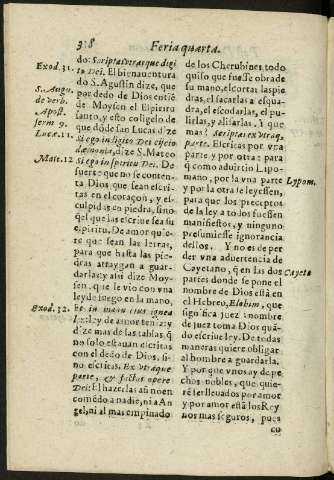 318
Feria quarta.
Exod. 31.
S. Augu.
de verb.
Apost.
serm 9.
Luca. 11.
Matt. 12
Exod. 32.
do: Scriptas utrasque digi
to Dei. El bienauentura
do S. Agustin dize, que
por dedo de Dios entiē
de Moysen el Espiritu
santo, y esto coligelo de
que dōde san Lucas dize
Si ego in digito Dei eijcio
dæmonia, dize S. Mateo
Si ego in spiritu Dei. De
suerte que no se conten
ta Dios que sean escri-
tas en el coraçon, y es-
culpidas en piedra, sino
que el que las escriue sea su
espiritu. De amor quie-
re que sean las letras,
para que hasta las pie-
dras atraygan a guar-
darlas: y assi dize Moy-
sen, que le vio con vna
ley de fuego en la mano,
Et in manu eius ignea
lex: ley de amor tenia: y
dize mas de las tablas, q̃
no solo estauan escritas
con el dedo de Dios, si-
no escritas. Ex utraque
parte, & factas opere
Dei: El hazerlas assi no en
comēdo a nadie, ni a An
gel, ni al mas empinado
de los Cherubines, todo
quiso que fuesse obra de
su mano, el cortar las pie
dras, el sacarlas a esqua-
dra, el escodarlas, el pu-
lirlas, y alisarlas. Y que
mas? Scriptas ex utraq;
parte. Escritas por vna
parte y por otra: para
q̃ como aduirtio Lipo-
mano, por la vna parte
y por la otra se leyessen,
para que los preceptos
de la ley a todos fuessen
manifiestos, y ninguno
presumiesse ignorancia
dellos. Y no es de per
der vna aduertencia de
Cayetano, q̃ en las dos
partes donde se pone el
nombre de Dios està en
el Hebreo, Elohim, que
significa juez: nombre
de juez toma Dios quā-
do escriue ley. De todas
maneras quiere obligar
al hombre a guardarla.
Y por que vnos ay de pe
chos nobles, que quie-
rē ser lleuados por amor
y por amor està los Rey
nos mas seguros, pues
Lypom.
Cayeta
co